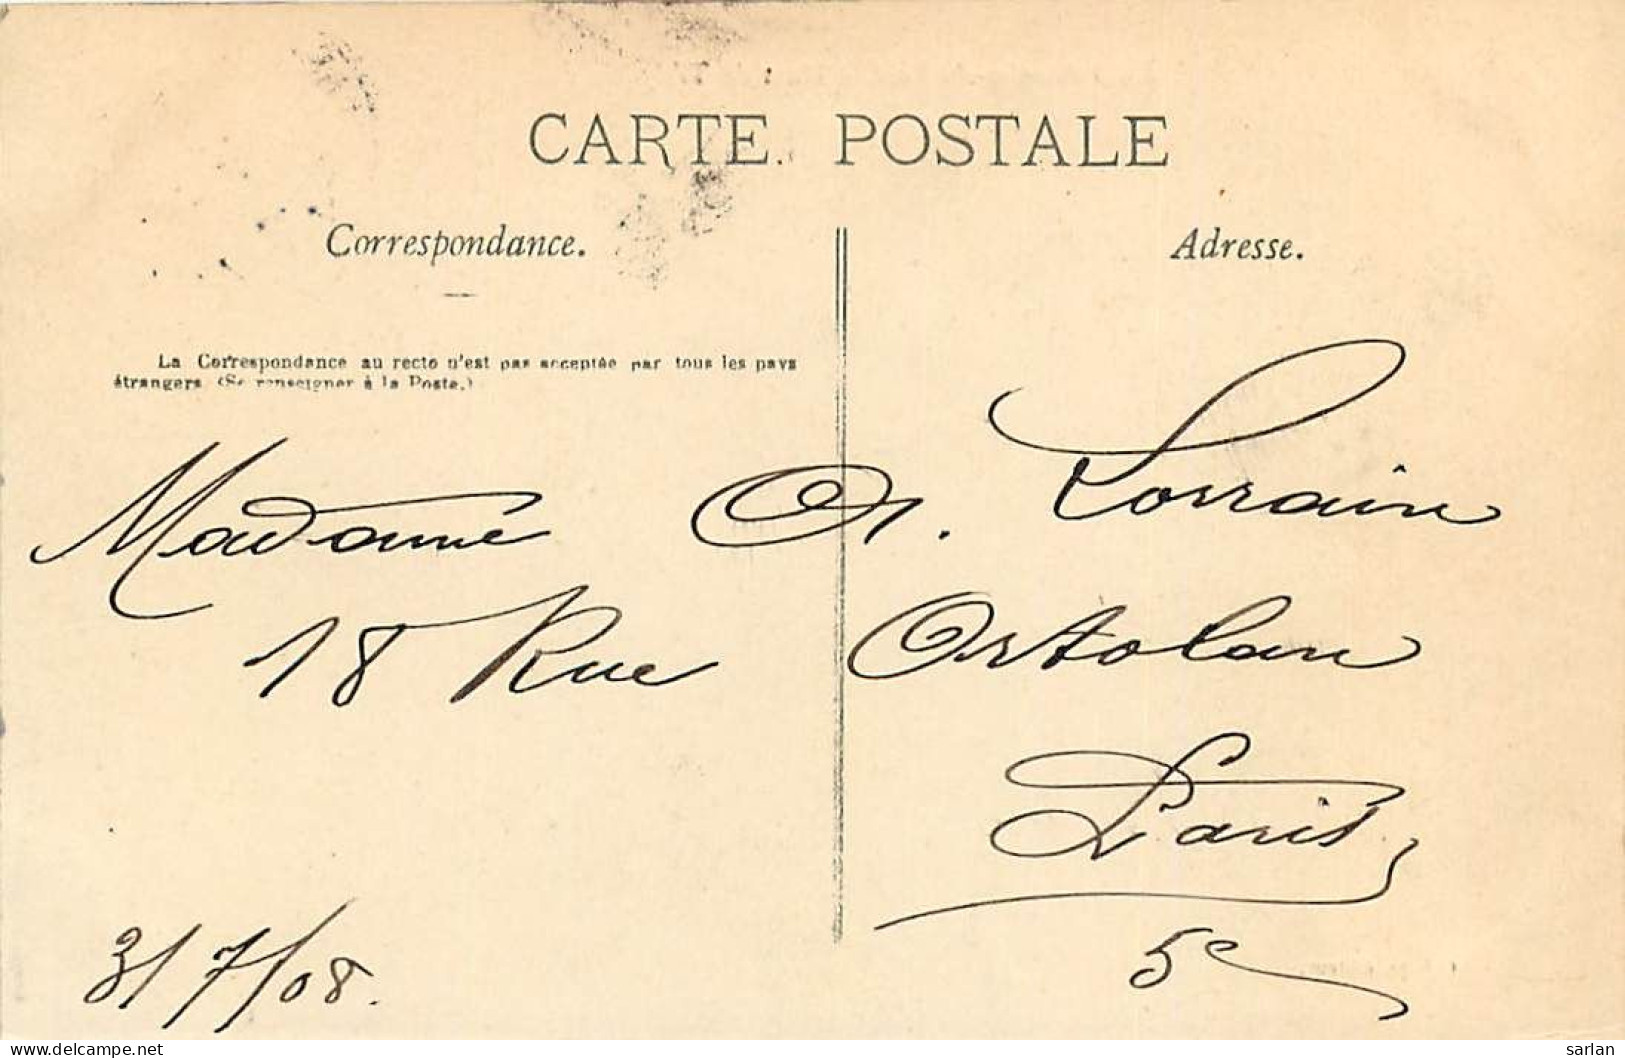 CARTE POSTALE
Correspondance.
Adresse.
La Correspondance au recto n'est pas acceptée par tous les pays
étrangers (Se renseigner à la Poste.)
Madame A. Lorrain
18 Rue Ortolan
Paris
5e
31/7/08.
www.delcampe.net
sarlan